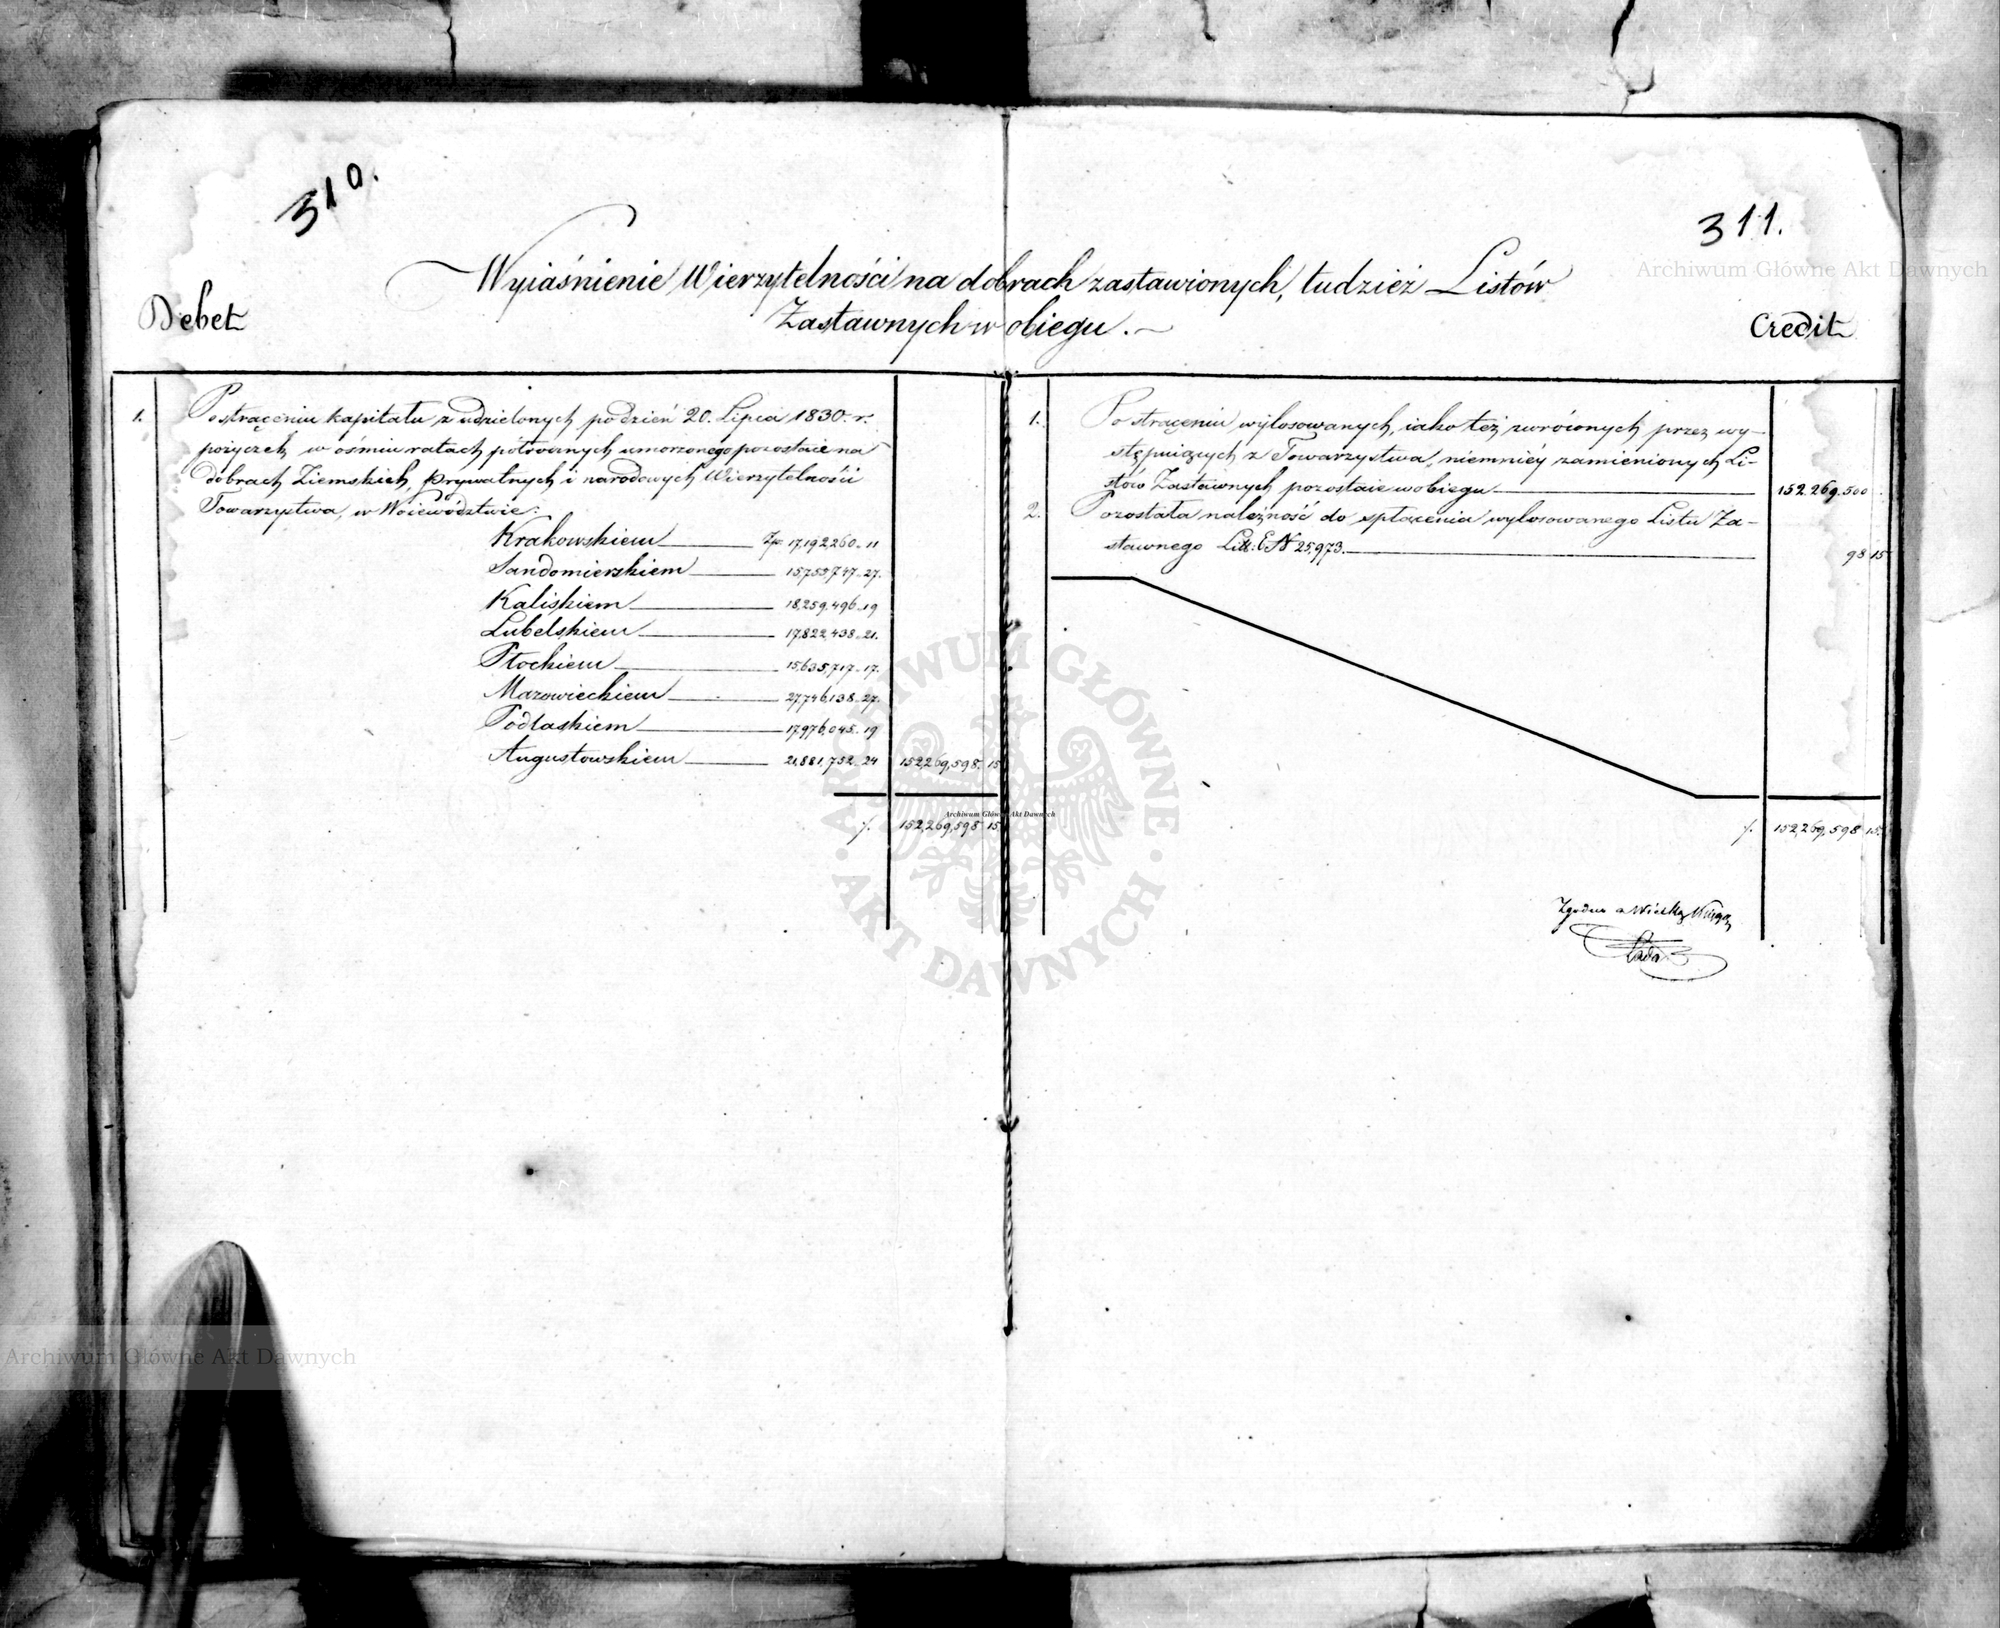 310.
311.
Archiwum Główne Akt Dawnych
Wyiaśnienie Wierzytelności na dobrach zastawionych, tudzież Listów
Zastawnych w obiegu.
Debet
Credit
1. Po strąceniu kapitału z udzielonych po dzień 20. Lipca 1830. r.
pożyczek, w ośmiu ratach półrocznych umorzonego pozostaie na
dobrach Ziemskich, Prywatnych i narodowych Wierzytelności
Towarzystwa, w Woiewództwie:
Krakowskiem Zp. 17,192,260.. 11
Sandomierskiem 15,753,747.. 27.
Kaliskiem 18,259,496.. 19
Lubelskiem 17,822,438.. 21.
Płockiem 15,635,717.. 17.
Mazowieckiem 27,746,138.. 27.
Podlaskiem 17,976,045.. 19
Augustowskiem 21,881,752.. 24 152,269,598. 15
/. 152,269,598 15
1. Po strąceniu wylosowanych, iako też zwróconych przez wy-
stępuiących z Towarzystwa, niemniéy zamienionych Li-
stów Zastawnych pozostaie w obiegu 152.269.500
2. Pozostała należność do spłacenia wylosowanego Listu Za-
stawnego Litt: E N 25,973. 98 15
/. 152,269,598 15.
Zgodno z Wielką Księgą
Archiwum Główne Akt Dawnych
ARCHIWUM GŁÓWNE
AKT DAWNYCH
Archiwum Główne Akt Dawnych